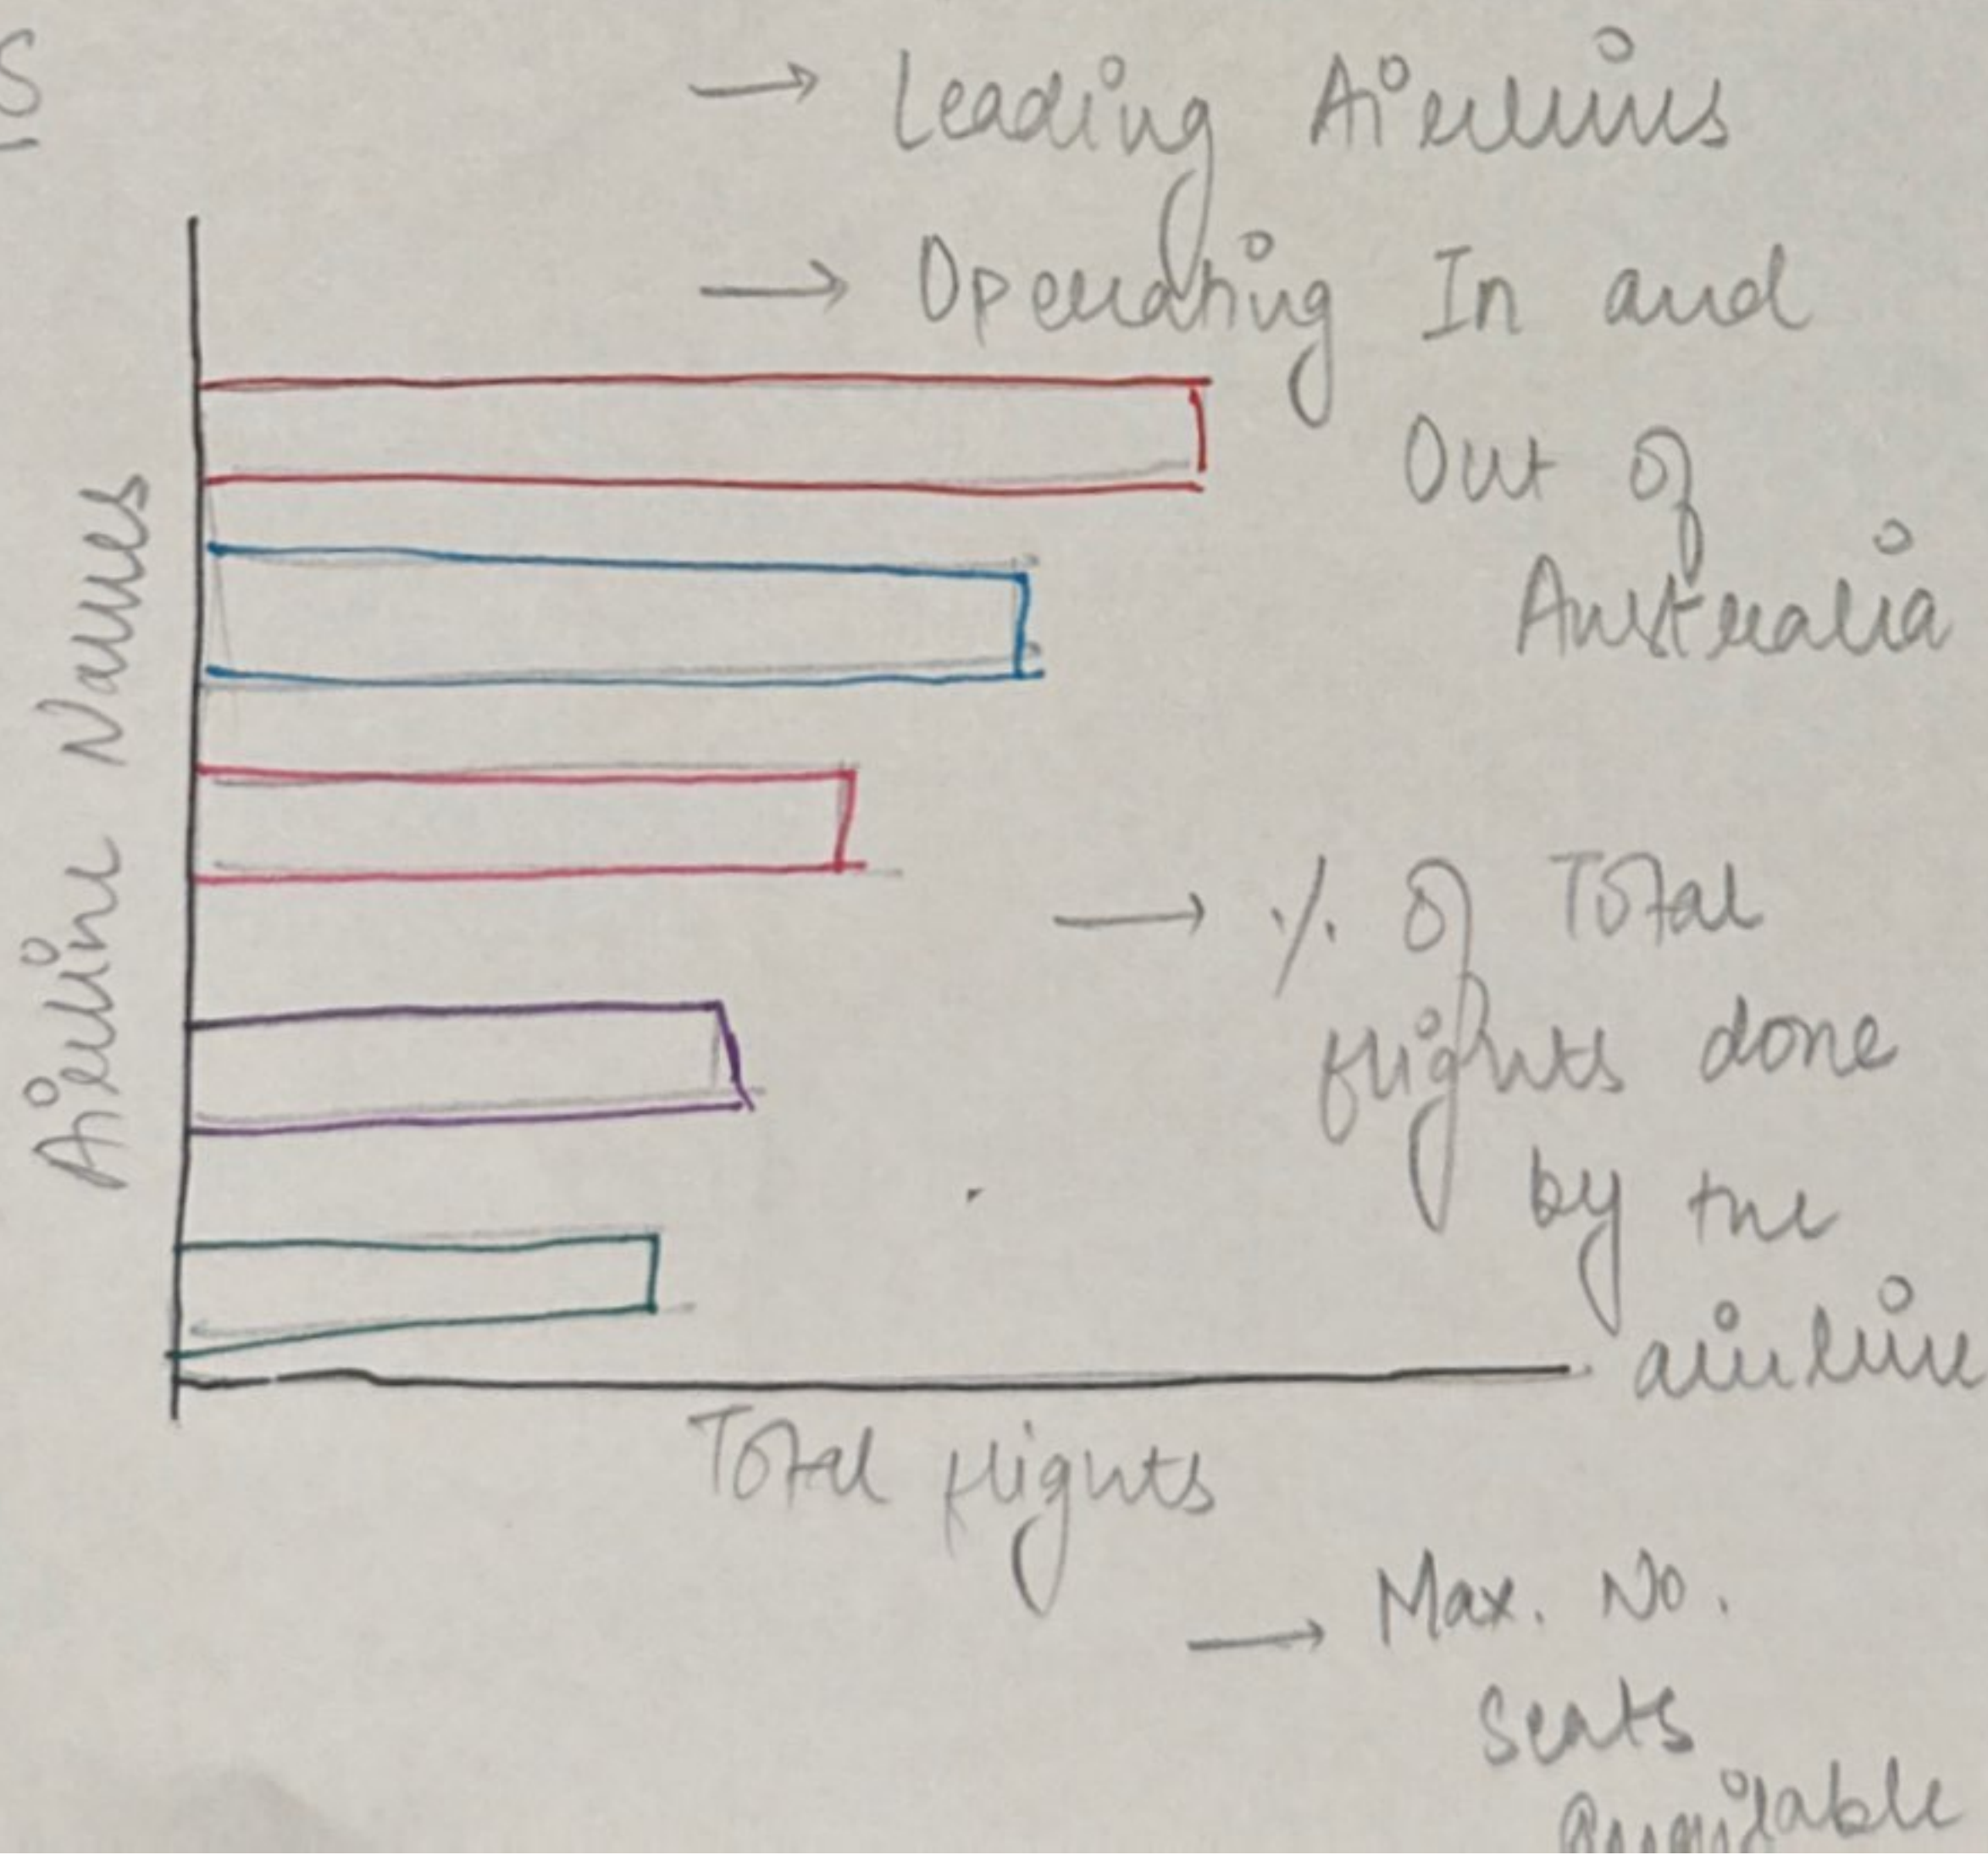 → Leading Airlines
→ Operating In and
Out of
Australia
Airline Names
→ % of Total
flights done
by the
airline
Total flights
→ Max. No.
Seats
Available